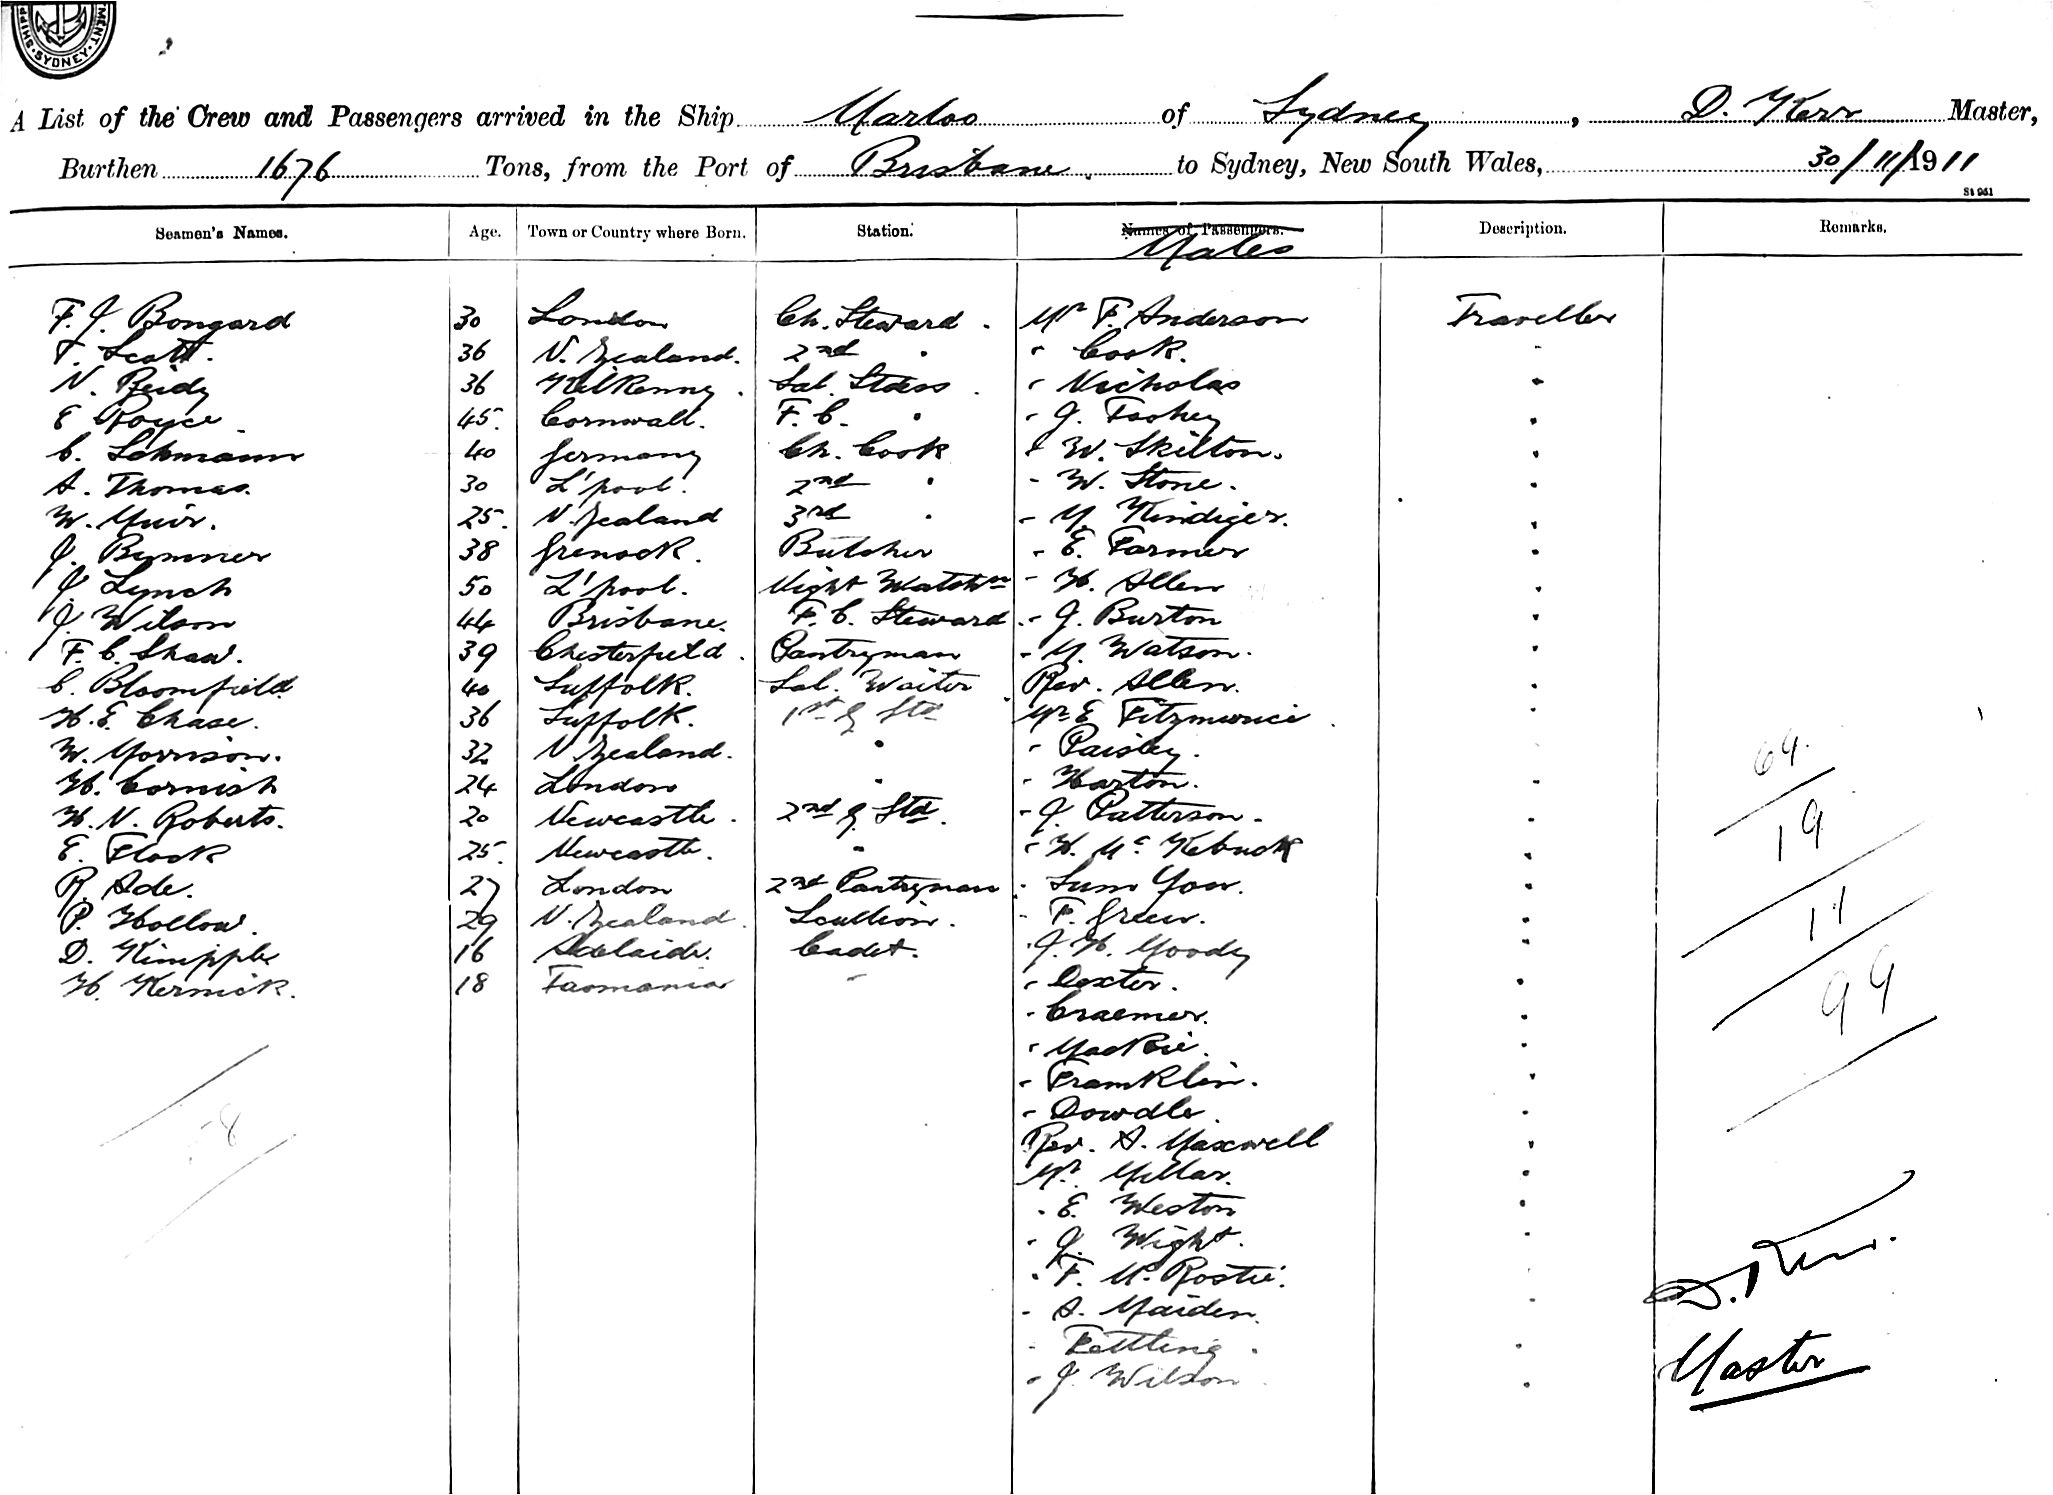 SHIPP MENT. SYDNEY.
A List of the Crew and Passengers arrived in the Ship Marloo of Sydney, D. Kerr Master,
Burthen 1676 Tons, from the Port of Brisbane. to Sydney, New South Wales, 30/11/1911
St 961
Seamen's Names. Age. Town or Country where Born. Station. Names of Passengers. Description. Remarks.
Males
F. J. Bongard 30 London Ch. Steward. Mr F. Anderson Traveller
T. Scott. 36 N. Zealand. 2nd " " Cook. "
N. Reidy 36 Kilkenny. Sal. Stdess. " Nicholas "
E Royce. 45. Cornwall. F. C. " " J. Toohey "
C. Lehmann 40 Germany Ch. Cook " W. Skilton. "
A. Thomas. 30 L'pool. 2nd " " W. Stone. "
W. Muir. 25. N. Zealand 3rd " " M. Kindiger. "
J. Bymner 38 Grenock. Butcher " E. Farmer "
J. Lynch 50 L'pool. Night Watchm " H. Allen "
J. Wilson 44 Brisbane. F. C. Steward " J. Burton "
F. C. Shaw. 39 Chesterfield. Pantryman " M. Watson. "
C. Bloomfield 40 Suffolk. Sal. Waiter Rev. Allen. "
H. E. Chase. 36 Suffolk. 1st G Std Mr E Fitzmurice. "
W. Morrison. 32 N Zealand. " " Paisley. "
H. Cornish 24 London " " Harton. "
H. N. Roberts. 20 Newcastle. 2nd G. Std. " J. Patterson. "
E. Flock 25. Newcastle. " " H. Mc Kebuck "
R. Ade. 27 London 2nd Pantryman " Sum Yow. "
P. Hollow. 29 N. Zealand. Scullion. " F. Green. "
D. Kimpple 16 Adelaide. Cadet. " J. H. Moody "
H. Kernick. 18 Tasmania " " Dexter. "
" Craemer. "
" Mackie. "
" Framklin. "
" Dowdle. "
Rev. A. Maxwell "
Mr. Millar. "
" E. Weston "
" J. Wight. "
" F. Mc Rostie. "
" A. Maiden. "
" Fettling. "
" J. Wilson. "
69.
19
11
99
58
D. Kerr.
Master